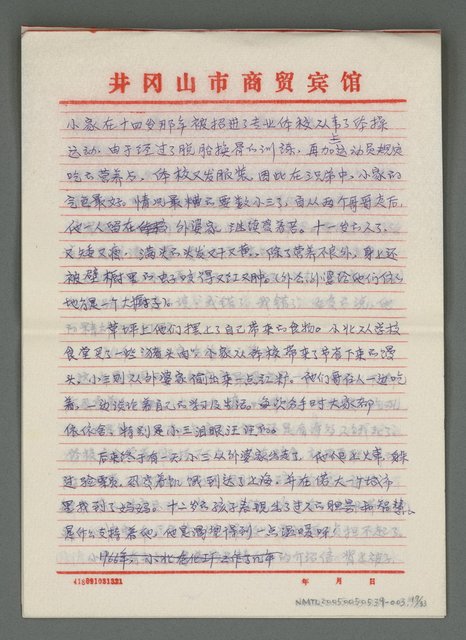 井冈山市商贸宾馆
小家在十四岁那年被招进了专业体校从事了体操
运动，由于经过了脱胎换骨的训练，再加运动员规定
吃的营养点，体校又发服装，因此在三兄弟中，小家的
气色最好。情况最糟的要数小三了，自从两个哥哥走后，
他一人留在外婆家，继续
十一岁的人了，
又矮又瘦，满头的头发又干又黄，除了营养不良外，身上还
被壁橱里的虫子咬得又红又肿。(外公外婆给他们住的
地方是一个大橱子)。
草坪上他们摆上了自己带来的食物。小北从学校
食堂买了一些"猪头肉"，小家从体校带来了节省下来的馒
头，小三则从外婆家偷出来一点
他们哥仨人一边吃
着，一边谈论着自己的学习及生活。每次分手时大家都
依依不舍，特别是小三泪眼汪汪的。
后来终于有一天小三从外婆家出走了，
火车，
过
到达了上海，并在偌大一个城市
里找到了妈妈。十二岁的孩子表现出了过人的胆量和智慧。
是什么支持着他，他是渴望得到一点温暖呀
1966年，小北在化工
工作了几年
418091031321
年 月 日
NMTL20050050539-003